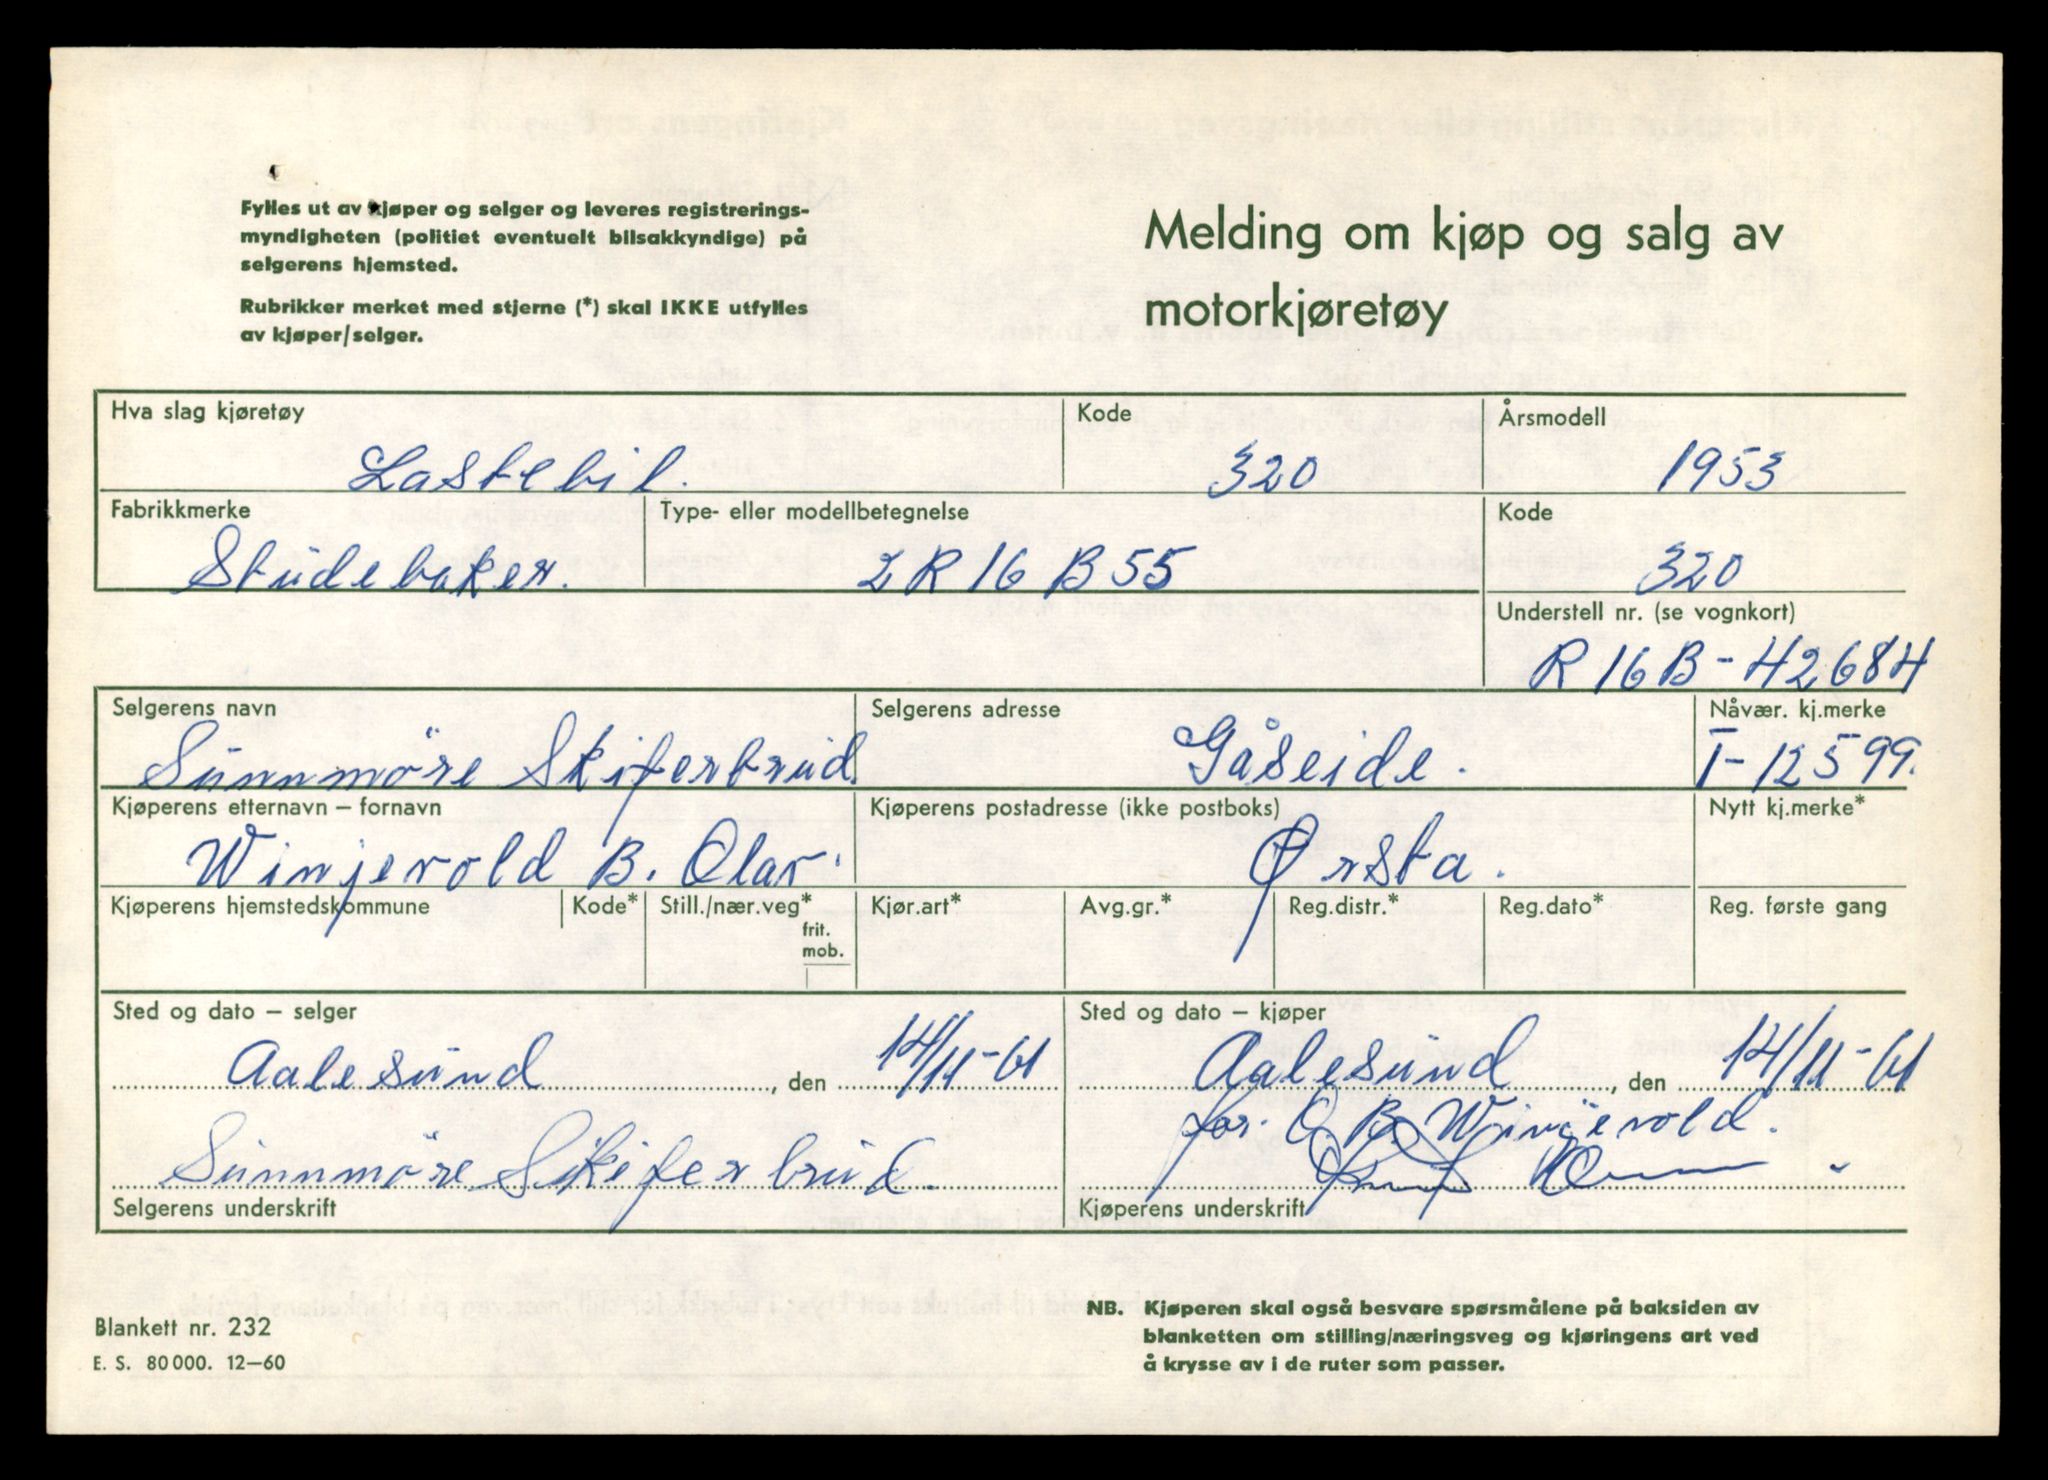 Fylles ut av kjøper og selger og leveres registrerings-
myndigheten (politiet eventuelt bilsakkyndige) på
selgerens hjemsted.
Rubrikker merket med stjerne (*) skal IKKE utfylles
av kjøper/selger.
Melding om kjøp og salg av
motorkjøretøy
Hva slag kjøretøy Kode Årsmodell
Lastebil. 320 1953
Fabrikkmerke Type- eller modellbetegnelse Kode
Studebaker. 2 R 16 B 55 320
Understell nr. (se vognkort)
R 16 B - 42684
Selgerens navn Selgerens adresse Nåvær. kj.merke
Sunnmöre Skiferbrud. Gåseide. T-12599.
Kjøperens etternavn – fornavn Kjøperens postadresse (ikke postboks) Nytt kj.merke*
Winjevold B. Olav. Ørsta.
Kjøperens hjemstedskommune Kode* Still./nær.veg* Kjør.art* Avg.gr.* Reg.distr.* Reg.dato* Reg. første gang
frit.
mob.
Sted og dato – selger Sted og dato – kjøper
Aalesund, den 14/11-61 Aalesund, den 14/11-61
for. O B. Winjevold.
Sunnmöre Skiferbrud.
Selgerens underskrift Kjøperens underskrift
Blankett nr. 232
E. S. 80 000. 12–60
NB. Kjøperen skal også besvare spørsmålene på baksiden av
blanketten om stilling/næringsveg og kjøringens art ved
å krysse av i de ruter som passer.